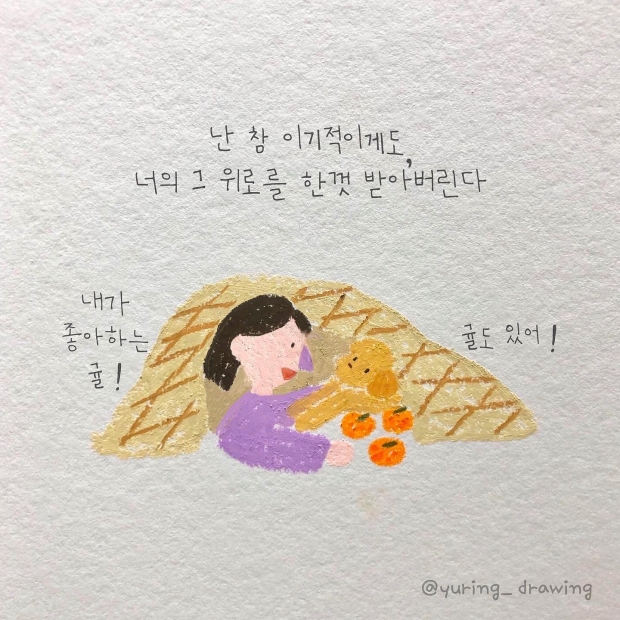 난 참 이기적이게도,
너의 그 위로를 한껏 받아버린다
내가
좋아하는
귤!
귤도 있어!
@yuring_drawing